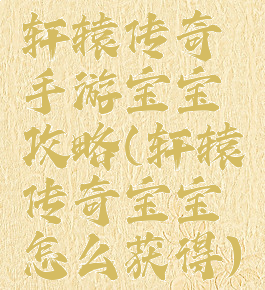 轩辕传奇
手游宝宝
攻略(轩辕
传奇宝宝
怎么获得)